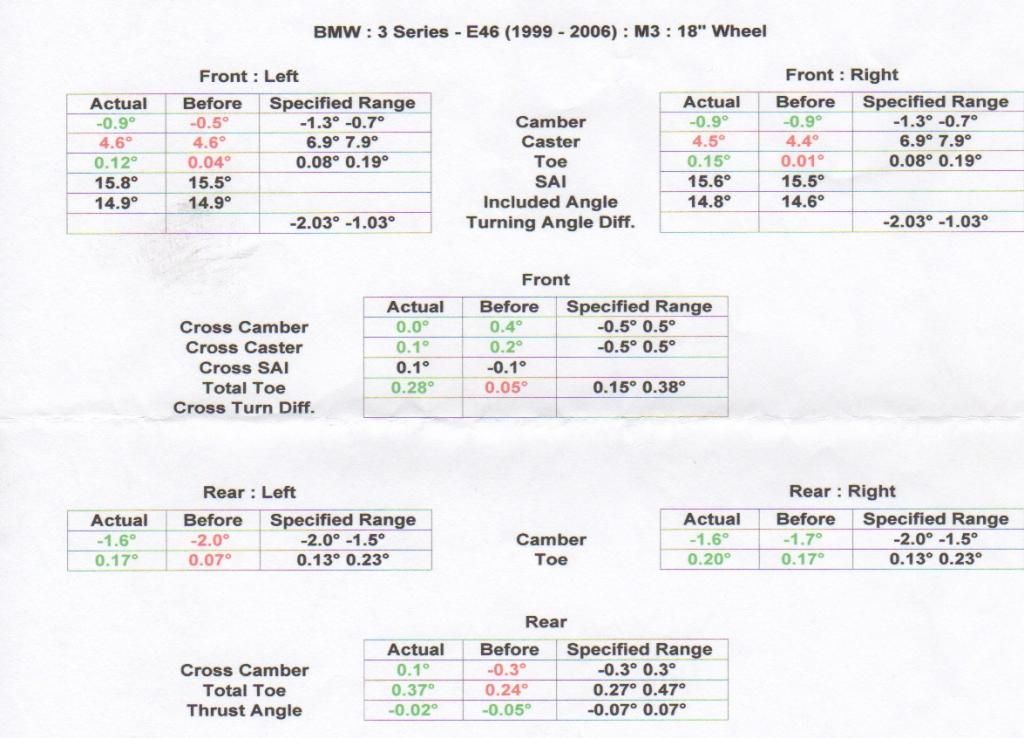 BMW : 3 Series - E46 (1999 - 2006) : M3 : 18" Wheel
Front : Left
Actual Before Specified Range
-0.9° -0.5° -1.3° -0.7°
4.6° 4.6° 6.9° 7.9°
0.12° 0.04° 0.08° 0.19°
15.8° 15.5°
14.9° 14.9°
-2.03° -1.03°
Camber
Caster
Toe
SAI
Included Angle
Turning Angle Diff.
Front : Right
Actual Before Specified Range
-0.9° -0.9° -1.3° -0.7°
4.5° 4.4° 6.9° 7.9°
0.15° 0.01° 0.08° 0.19°
15.6° 15.5°
14.8° 14.6°
-2.03° -1.03°
Front
Actual Before Specified Range
Cross Camber 0.0° 0.4° -0.5° 0.5°
Cross Caster 0.1° 0.2° -0.5° 0.5°
Cross SAI 0.1° -0.1°
Total Toe 0.28° 0.05° 0.15° 0.38°
Cross Turn Diff.
Rear : Left
Actual Before Specified Range
-1.6° -2.0° -2.0° -1.5°
0.17° 0.07° 0.13° 0.23°
Camber
Toe
Rear : Right
Actual Before Specified Range
-1.6° -1.7° -2.0° -1.5°
0.20° 0.17° 0.13° 0.23°
Rear
Actual Before Specified Range
Cross Camber 0.1° -0.3° -0.3° 0.3°
Total Toe 0.37° 0.24° 0.27° 0.47°
Thrust Angle -0.02° -0.05° -0.07° 0.07°